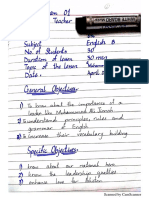 01
Teacher
Subject English B
No. of Students 30
Duration of lesson 30 min
Topic of the Lesson
Date: April,
General Objectives:-
1) To know about the importance of a
leader like Muhammad Ali Jinnah
2) To understand principles, rules and
grammar of English
3) To increase their vocabulary building
Specific Objectives:-
know about our national hero
know the leadership qualities
enhance love for
Scanned by CamScanner